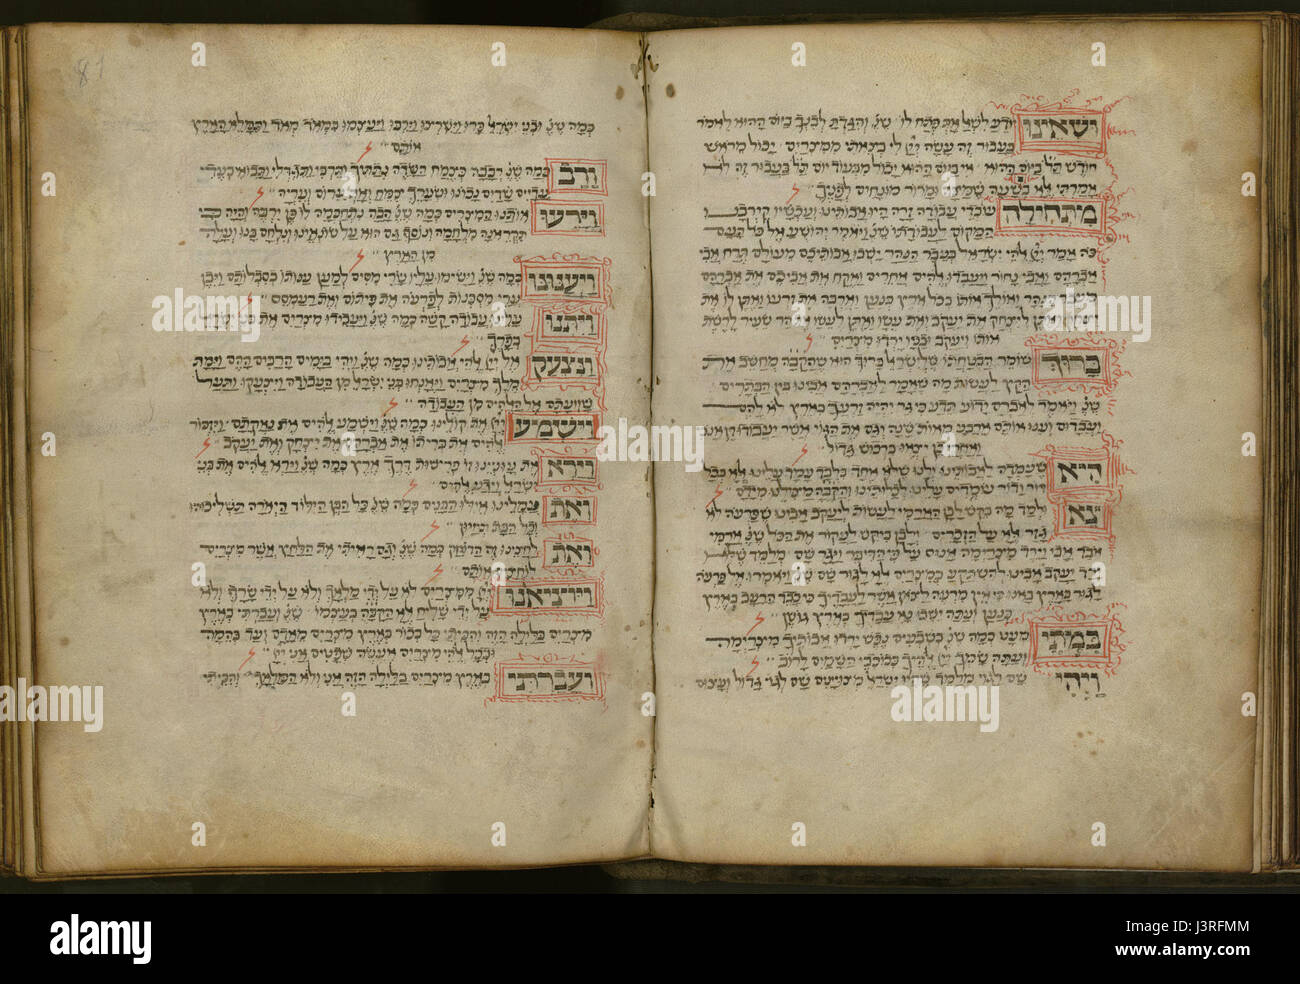 81
ושאינו יודע לשאל את פתח לו שנ' והגדת לבנך ביום ההוא לאמר
בעבור זה עשה יי לי בצאתי ממצרים יכול מראש
חודש תל' ביום ההוא אי ביום ההוא יכול מבעוד יום תל' בעבור זה לא
אמרתי אלא בשעה שמצה ומרור מונחים לפניך
מתחילה עובדי עבודה זרה היו אבותינו ועכשיו קירבנו
המקום לעבודתו שנ' ויאמר יהושע אל כל העם
כה אמר יי אלהי ישראל בעבר הנהר ישבו אבותיכם מעולם תרח אבי
אברהם ואבי נחור ויעבדו אלהים אחרים ואקח את אביכם את אברהם
מעבר הנהר ואולך אותו בכל ארץ כנען וארבה את זרעו ואתן לו את
יצחק ואתן ליצחק את יעקב ואת עשו ואתן לעשו את הר שעיר לרשת
אותו ויעקב ובניו ירדו מצרים
ברוך שומר הבטחתו לישראל ברוך הוא שהקב'ה מחשב את
הקץ לעשות מה שאמר לאברהם אבינו בין הבתרים
שנ' ויאמר לאברם ידוע תדע כי גר יהיה זרעך בארץ לא להם
ועבדום וענו אותם ארבע מאות שנה וגם את הגוי אשר יעבודו דן אנכי
ואחרי כן יצאו ברכוש גדול
היא שעמדה לאבותינו ולנו שלא אחד בלבד עמד עלינו אלא בכל
דור ודור עומדים עלינו לכלותינו והקב'ה מצילנו מידם
צא ולמד מה בקש לבן הארמי לעשות ליעקב אבינו שפרעה לא
גזר אלא על הזכרים ולבן ביקש לעקור את הכל שנ' ארמי
אבד אבי וירד מצרימה אנוס על פי הדיבר ויגר שם מלמד שלא
ירד יעקב אבינו להשתקע במצרים אלא לגור שם שנ' ויאמרו אל פרעה
לגור בארץ באנו כי אין מרעה לצאן אשר לעבדיך כי כבד הרעב בארץ
כנען ועתה ישבו נא עבדיך בארץ גושן
במתי מעט כמה שנ' בשבעים נפש ירדו אבותיך מצרימה
ועתה שמך יי אלהיך ככוכבי השמים לרוב
ויהי שם לגוי מלמד שהיו ישראל מצויינים שם לגוי גדול ועצום
כמה שנ' ובני ישראל פרו וישרצו וירבו ויעצמו במאוד מאוד ותמלא הארץ
אותם
ורב כמה שנ' רבבה כצמח השדה נתתיך ותרבי ותגדלי ותבואי בעדי
עדיים שדים נכונו ושערך צמח ואת ערום ועריה
וירעו אותנו המצרים כמה שנ' הבה נתחכמה לו פן ירבה והיה כי
תקראנה מלחמה ונוסף גם הוא על שונאינו ונלחם בנו ועלה
מן הארץ
ויענונו כמה שנ' וישימו עליו שרי מסים למען ענותו בסבלותם ויבן
ערי מסכנות לפרעה את פיתום ואת רעמסס
ויתנו עלינו עבודה קשה כמה שנ' ויעבידו מצרים את בני ישראל
בפרך
ונצעק אל יי אלהי אבותינו כמה שנ' ויהי בימים הרבים ההם וימת
מלך מצרים ויאנחו בני ישראל מן העבודה ויזעקו ותעל
שוועתם אל האלהים מן העבודה
וישמע יי את קולינו כמה שנ' וישמע אלהים את נאקתם ויזכור
אלהים את בריתו את אברהם את יצחק ואת יעקב
וירא את עניינו זו פרישות דרך ארץ כמה שנ' וירא אלהים את בני
ישראל וידע אלהים
ואת עמלינו אילו הבנים כמה שנ' כל הבן הילוד היאורה תשליכוהו
וכל הבת תחיון
ואת לחצינו זה הדוחק כמה שנ' וגם ראיתי את הלחץ אשר מצרים
לוחצים אותם
ויוציאנו יי ממצרים לא על ידי מלאך ולא על ידי שרף ולא
על ידי שליח אלא הקב'ה בעצמו שנ' ועברתי בארץ
מצרים בלילה הזה והכיתי כל בכור בארץ מצרים מאדם ועד בהמה
ובכל אלהי מצרים אעשה שפטים אני יי
ועברתי בארץ מצרים בלילה הזה אני ולא המלאך והכיתי
alamy
J3RFMM
www.alamy.com